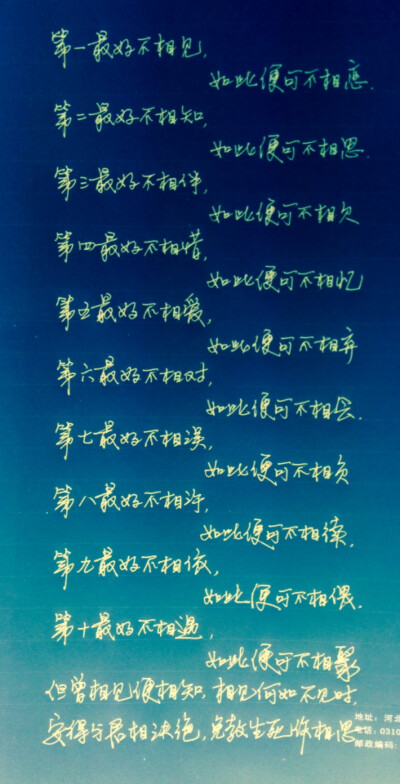 第一最好不相见，
如此便可不相恋。
第二最好不相知，
如此便可不相思。
第三最好不相伴，
如此便可不相欠
第四最好不相惜，
如此便可不相忆
第五最好不相爱，
如此便可不相弃
第六最好不相对，
如此便可不相会。
第七最好不相误，
如此便可不相负
第八最好不相许，
如此便可不相续。
第九最好不相依，
如此便可不相偎。
第十最好不相遇，
如此便可不相聚
但曾相见便相知，相见何如不见时，
安得与君相决绝，免教生死作相思
地址：河北
电话：0310
邮政编码：